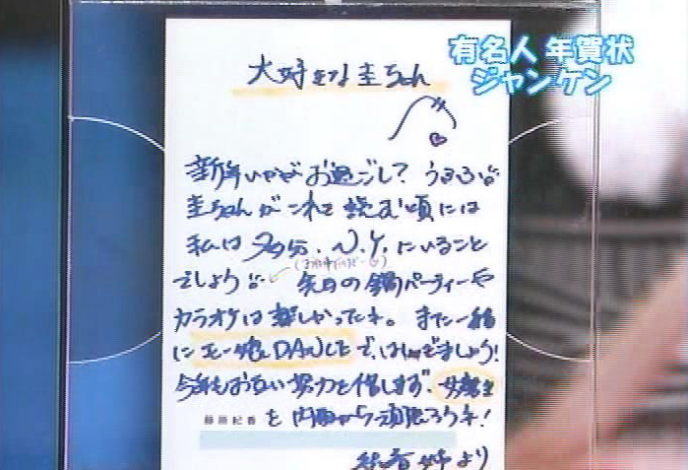 有名人 年賀状
ジャンケン
大好きな圭ちゃん
新年いかがお過ごし? うふふ
圭ちゃんがこれを読む頃には
私は多分、N.Y.にいること
でしょう 先日の鍋パーティーや
カラオケは楽しかったネ。また一緒
にモー娘DANCEで、はしゃぎましょう!
今年もお互い努力を惜しまず、女磨き
を内面から頑張ろうネ!
藤原紀香
紀香姉より